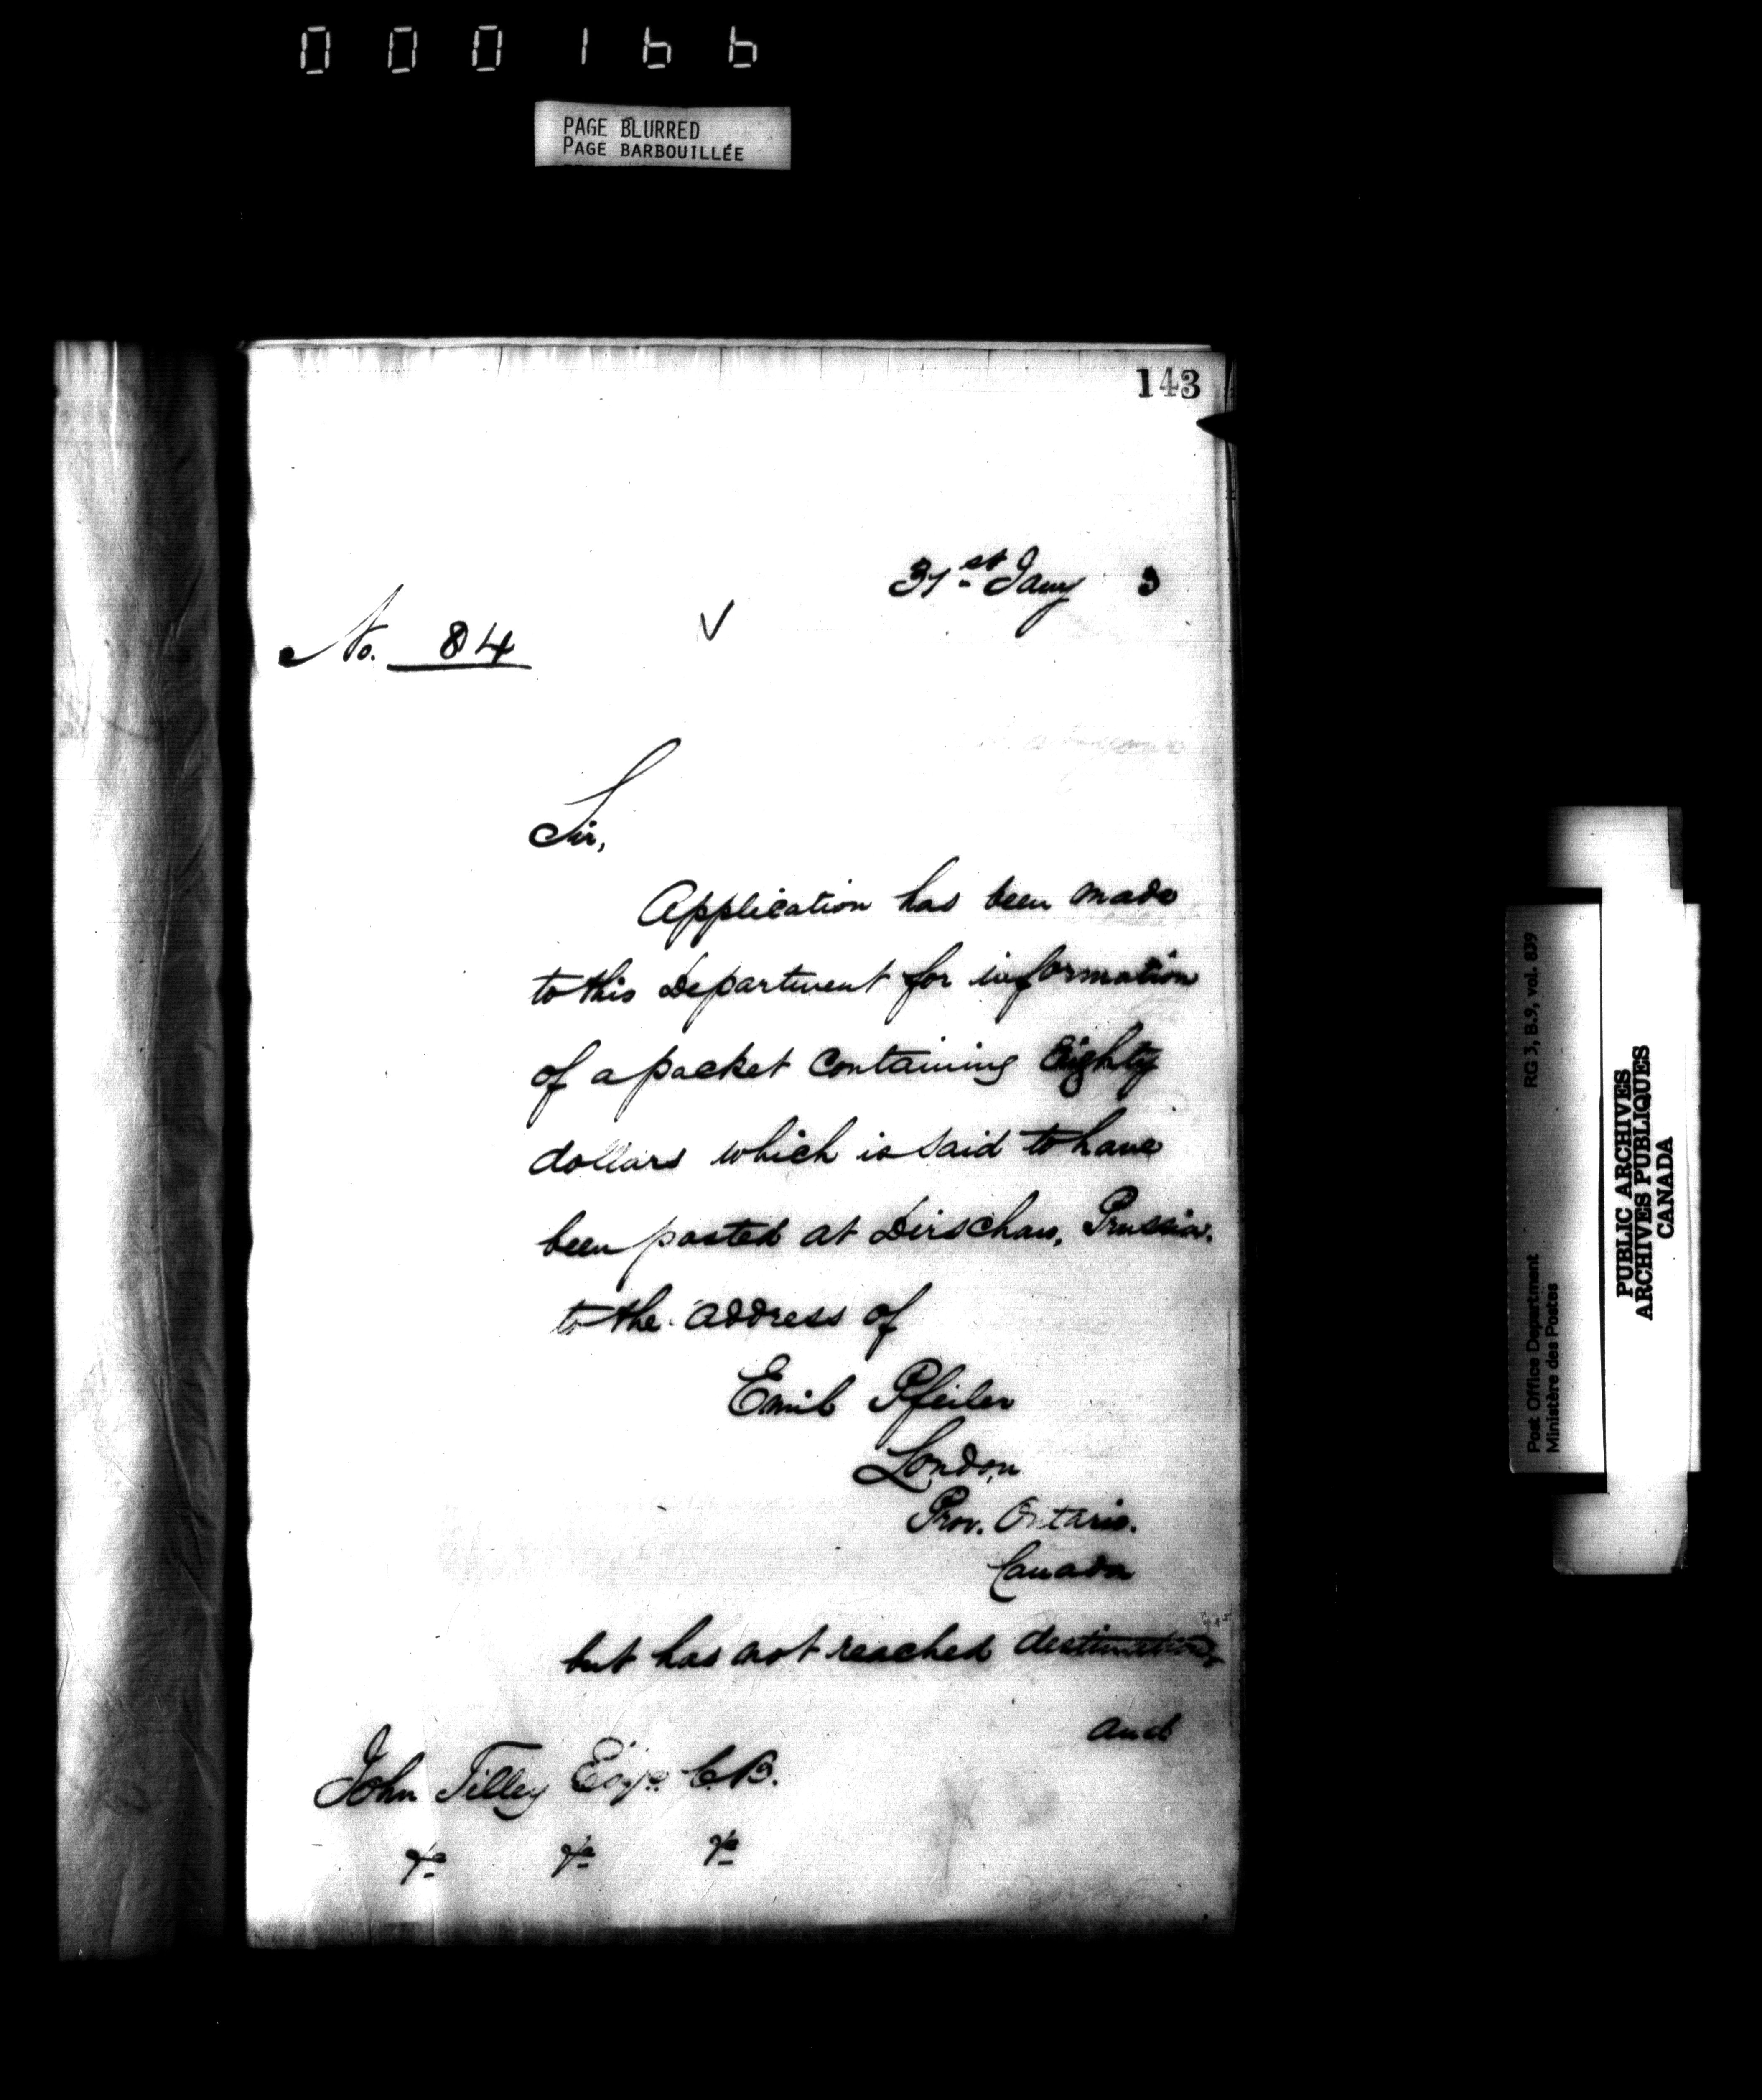 000166
PAGE BLURRED
PAGE BARBOUILLÉE
143
31st Jany 3
No. 84
Sir,
Application has been made
to this Department for information
of a packet containing Eighty
dollars which is said to have
been posted at Dirschau, Prussia.
to the address of
Emil Pfeiler
London
Prov. Ontario.
Canada
but has not reached destination,
and
John Tilley Esqre C.B.
&c &c &c
RG 3, B.9, vol. 839
Post Office Department
Ministère des Postes
PUBLIC ARCHIVES
ARCHIVES PUBLIQUES
CANADA